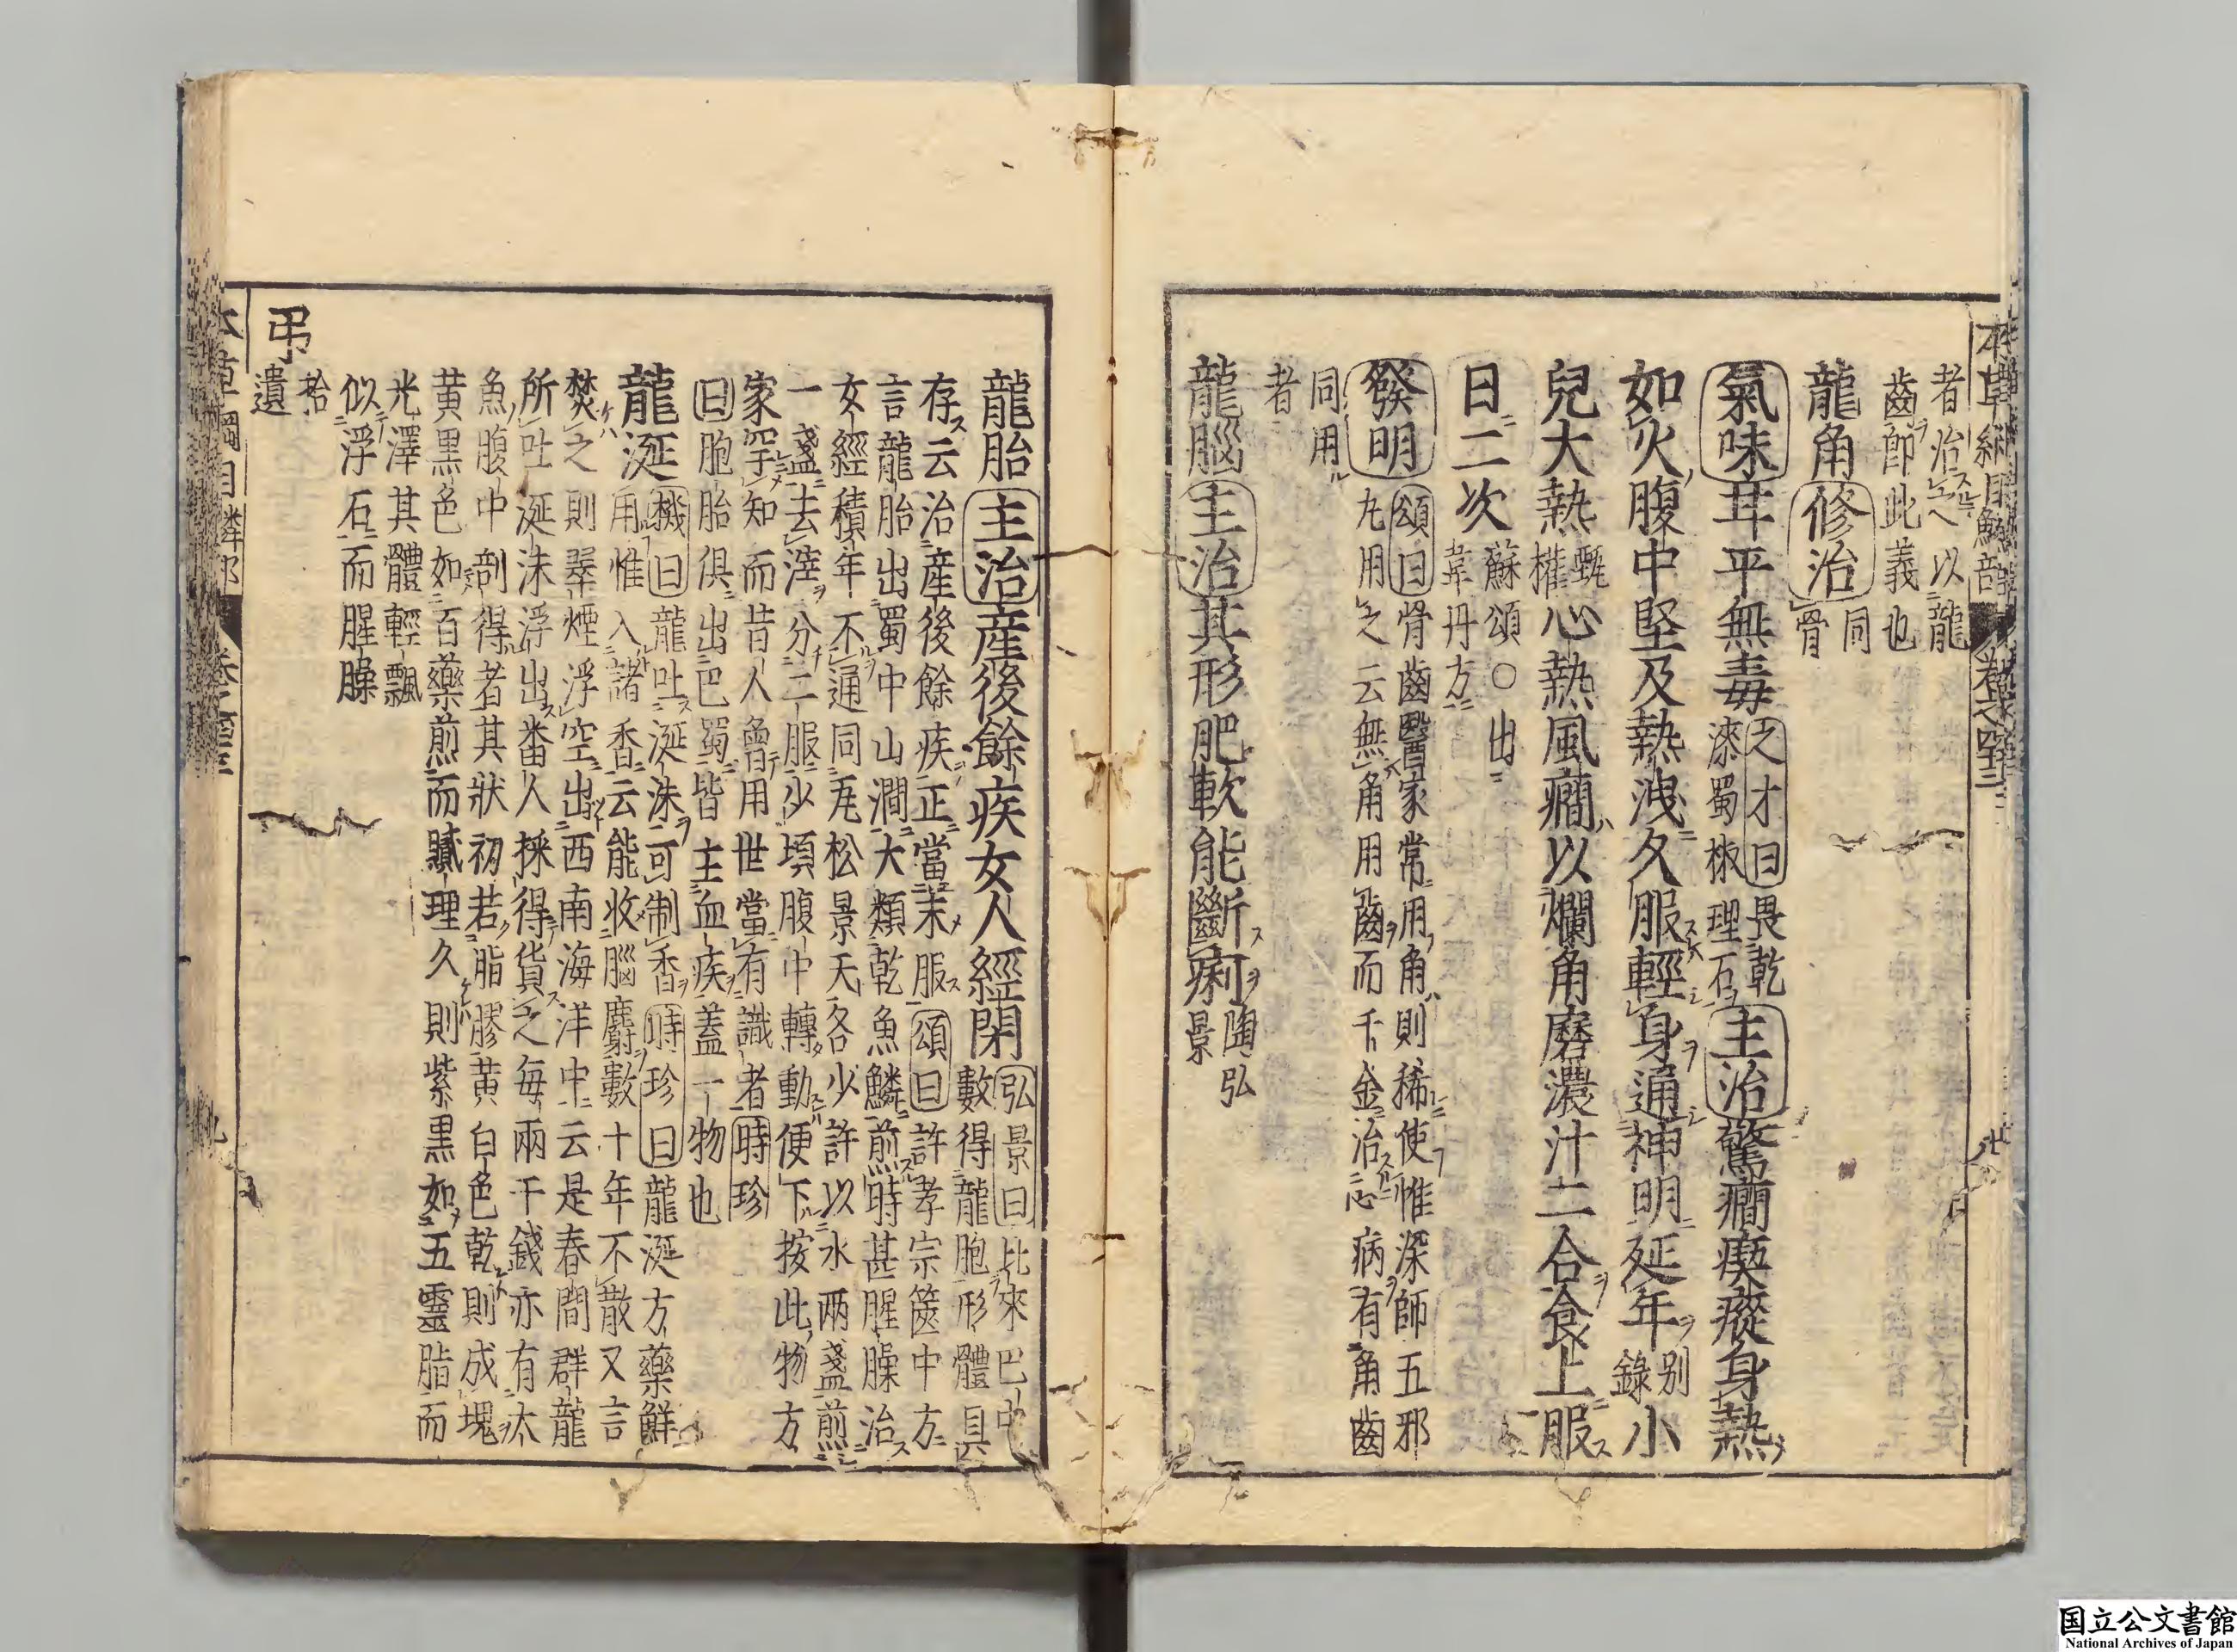 者治之以龍
齒即此義也
龍角修治同骨
氣味甘平無毒之才曰畏乾漆蜀椒理石主治驚癇瘈瘲身熱
如火腹中堅及熱洩久服輕身通神明延年别錄小
兒大熱甄權心熱風癇以爛角磨濃汁二合食上服
日二次蘇頌○出韋丹方
發明頌曰骨齒醫家常用角則稀使惟深師五邪
丸用之云無角用齒而千金治心病有角齒
同用
者
龍腦主治其形肥軟能斷痢陶弘景
龍胎主治產後餘疾女人經閉弘景曰比來巴中
數得龍胞形體具
存云治產後餘疾正當末服頌曰許孝宗篋中方
言龍胎出蜀中山澗大類乾魚鱗煎時甚腥臊治
女經積年不通同瓦松景天各少許以水兩盞煎
一盞去滓分二服少頃腹中轉動便下按此物方
家罕知而昔人曾用世當有識者時珍
曰胞胎俱出巴蜀皆主血疾蓋一物也
龍涎機曰龍吐涎沫可制香時珍曰龍涎方藥鮮
用惟入諸香云能收腦麝數十年不散又言
焚之則翠煙浮空出西南海洋中云是春間群龍
所吐涎沫浮出番人採得貨之每兩千錢亦有大
魚腹中剖得者其狀初若脂膠黃白色乾則成塊
黃黑色如百藥煎而膩理久則紫黑如五靈脂而
光澤其體輕飄
似浮石而腥臊
弔拾遺
本草綱目鱗部
卷之四十三
九
国立公文書館
National Archives of Japan